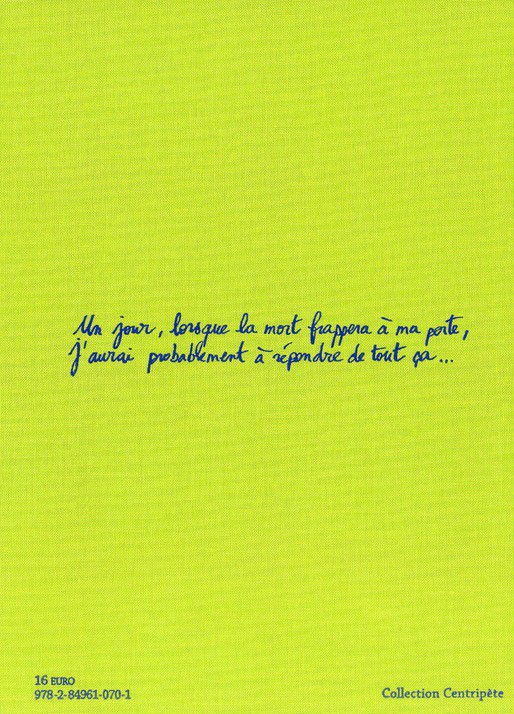 Un jour, lorsque la mort frappera à ma porte,
j'aurai probablement à répondre de tout ça...
16 EURO
978-2-84961-070-1
Collection Centripète